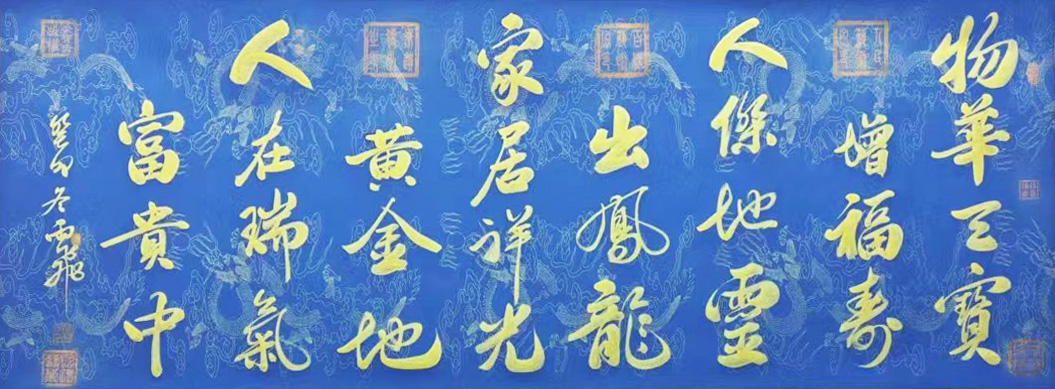 物華天寶
增福壽
人傑地靈
出鳳龍
家居祥光
黃金地
人在瑞氣
富貴中
癸卯冬雲飛